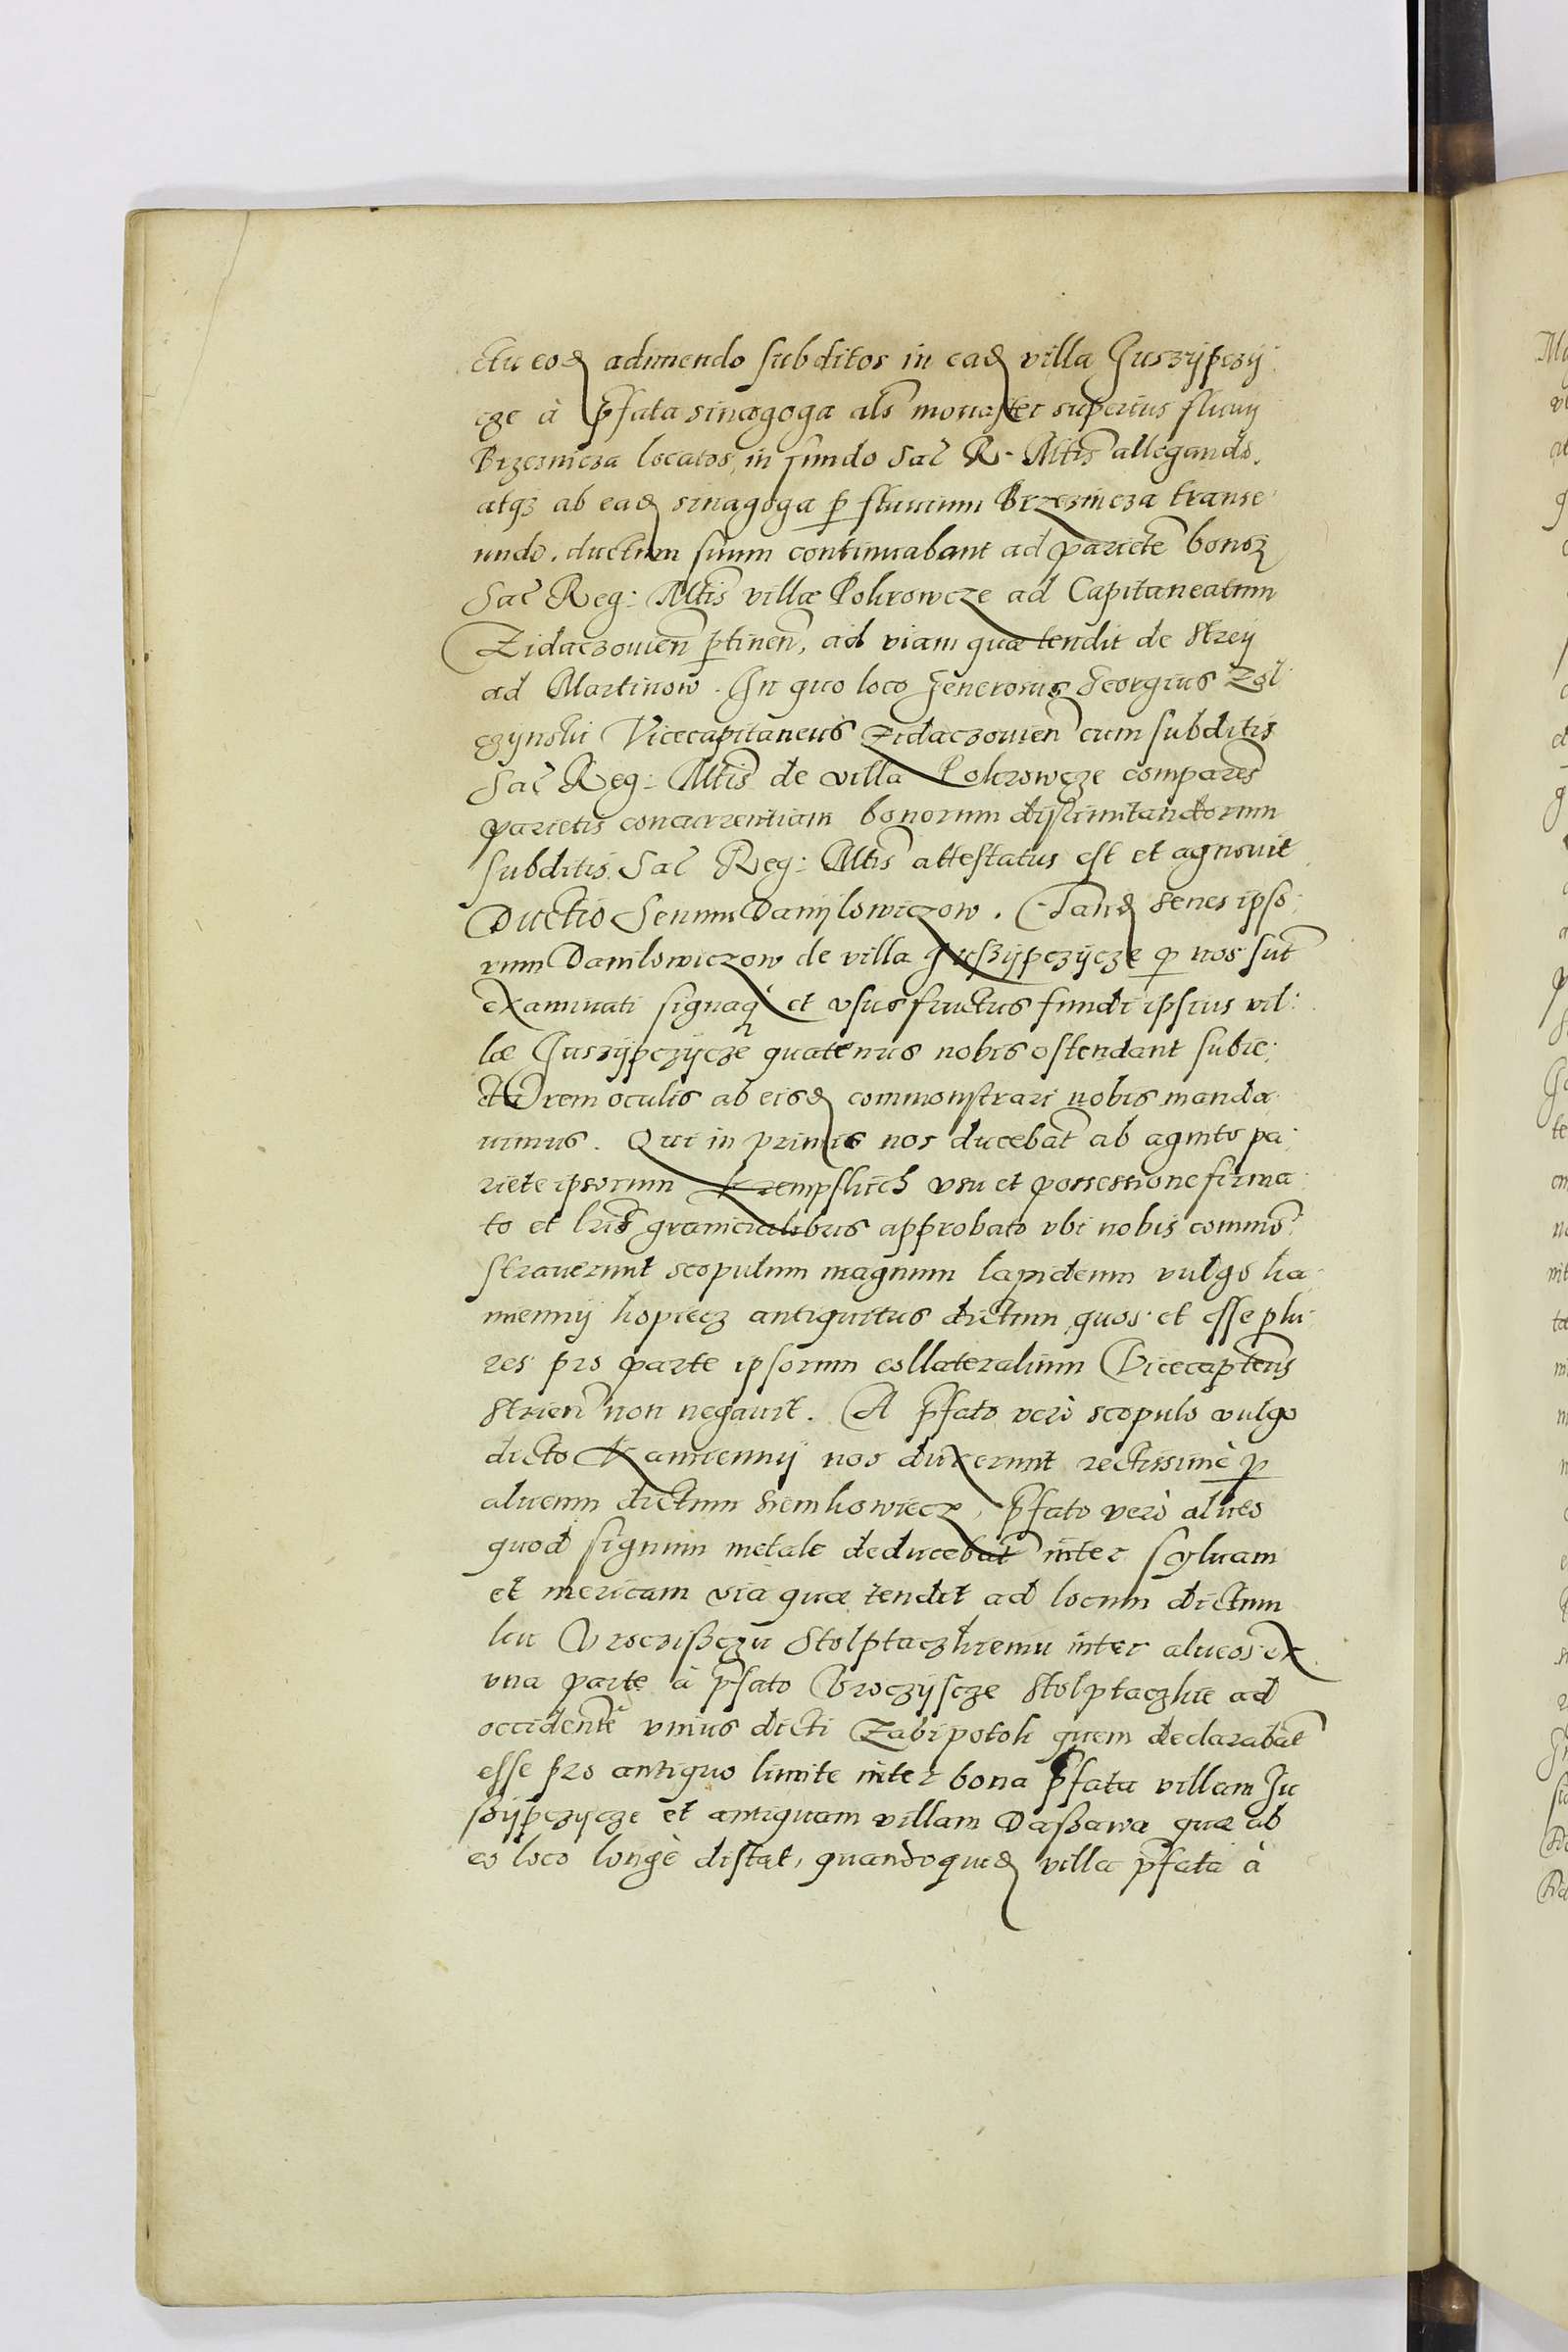 ctu eod(em) adimendo subditos in ead(em) villa Juszÿpczÿ
cze à p̄fata sinagoga als̄ monaster superius fluuÿ
Brzeznicza locatos, in fundo Sac̄ R. Mt̄is allegando.
atq(ue) ab ead(em) sinagoga p̄ fluuium Brzeznicza transe
undo. ductum suum continuabant ad pariete̅ bonoꝝ
Sac̄ Reg: Mt̄is villæ Pokrowcze ad Capitaneatum
Zidaczouien̄ p̱tinen̄, ad viam quæ tendit de Streÿ
ad Martinow. In quo loco Generosus Georgius Zol
czÿnski Vicecapitaneus Zidaczouien̄ cum subditis
Sac̄ Reg: Mt̄is de villa Pokrowcze comparen̄s
parietis concurrentiam bonorum dislimitandorum
subditis Sac̄ Reg: Mt̄is attestatus est et agnouit
Ductio Senum Danÿlowiczow. Tand(em) Senes ipso:
rum Danilowiczow de villa Juszÿpczÿcze p̱ nos sūt
examinati signaq(ue) et vsus fructus fundi ipsius vil:
læ Juszÿpczÿcze quatenus nobis ostendant subie:
ctam rem oculis ab eisd(em) commonstrari nobis manda
uimus. Qui in primis nos duceba̅t ab agnito pa:
riete ipsorum Krempskich vsu et possessione firma
to et lr̄is granicialibus approbato vbi nobis commo̅
strauerunt scopulum magnum lapideum vulgo ka
miennÿ kopiecz antiquitus dictum, quos et esse plu:
res pro parte ipsorum collateralium Vicecapt̄eus
Strien̄ non negauit. A p̄fato verò scopulo vulgo
dicto Kamiennÿ nos duxerunt rectissimè p̱
alueum dictum Siemkowiecz, p̄fato verò alueo
quod signum metale deducebat̄ inter sÿluam
et mericam via quæ tendit ad locum dictum
ku Vroczißczu Stolptaczkiemu inter alueos ex
vna parte à p̄fato Vroczÿscze Stolptaczkie ad
occidente̅ vnius dicti Zabi potok quem declaraba̅t
esse pro antiquo limite inter bona p̄fata villam Ju
ßÿpczÿcze et antiquam villam Daßawa quæ ab
eo loco longè distat, quandoquid(em) villa p̄fata à